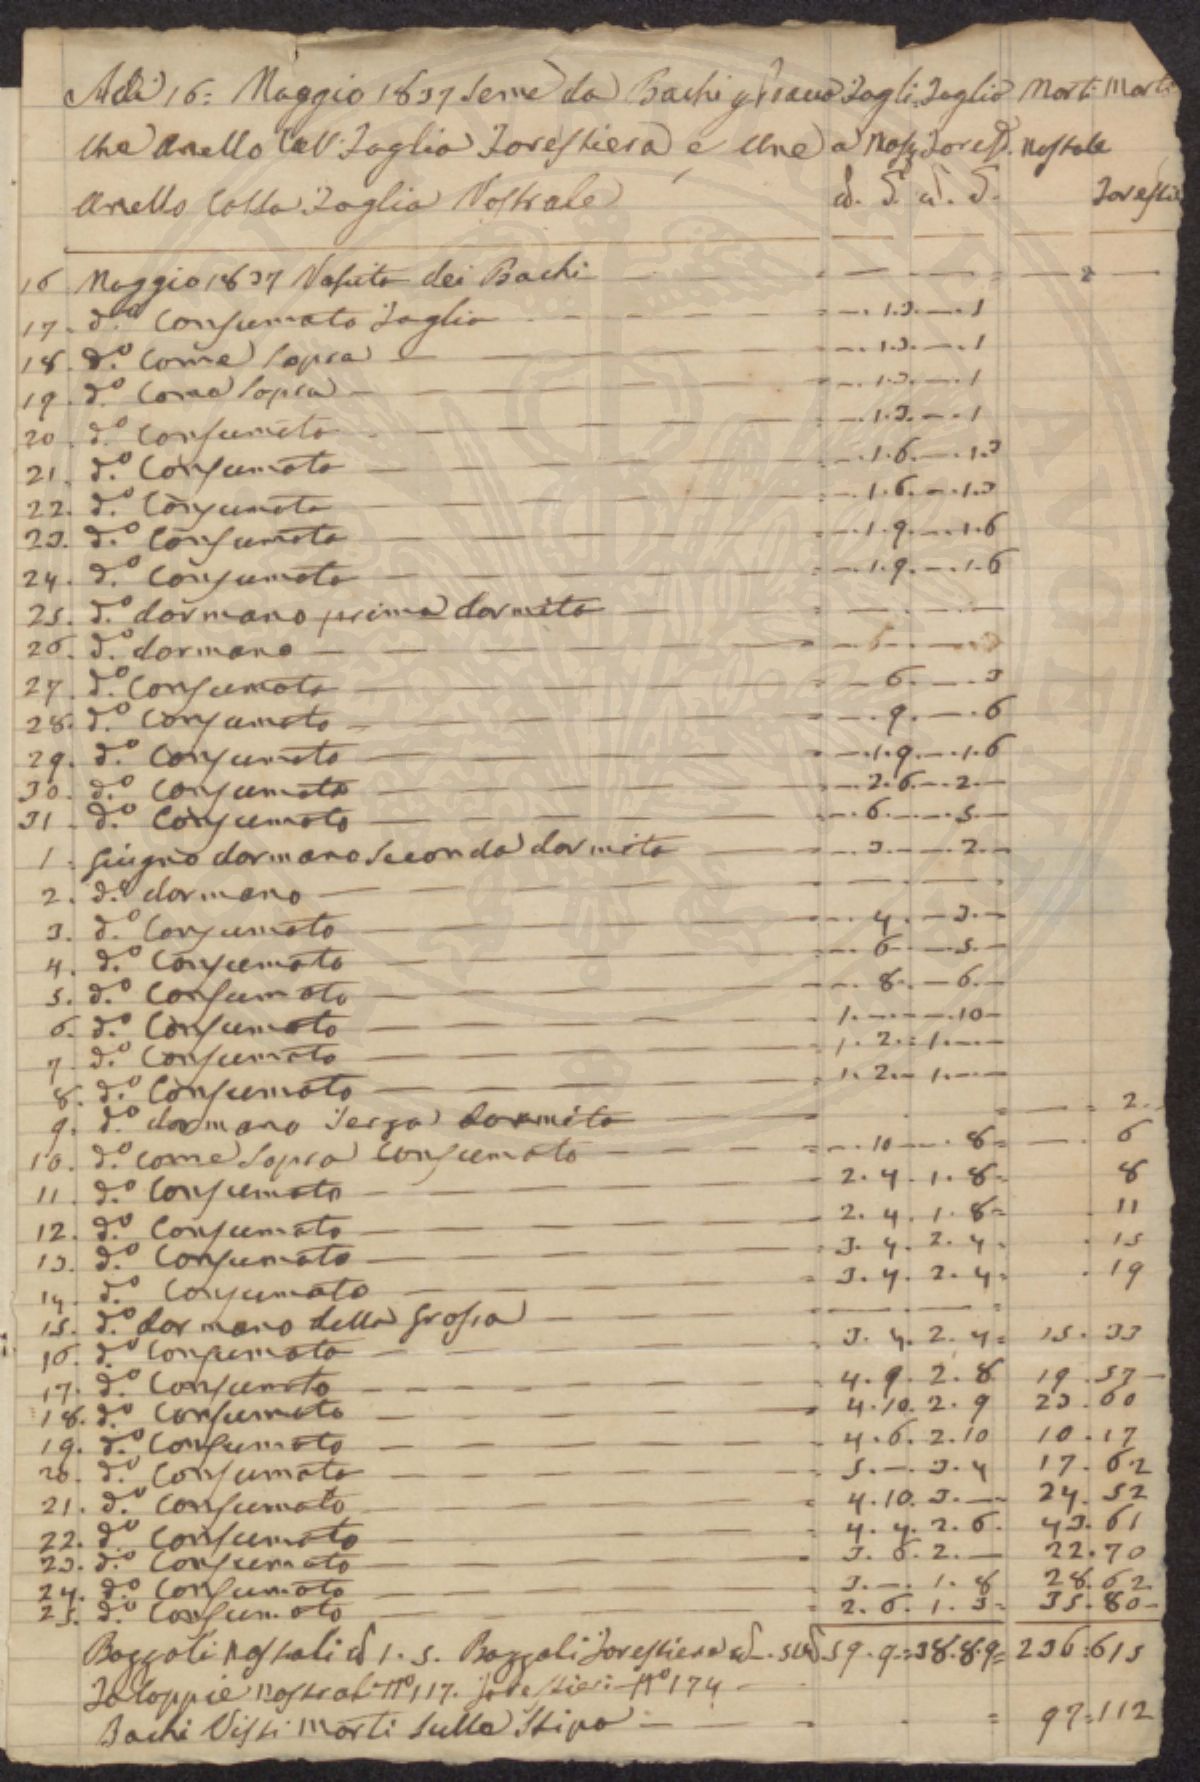 Adi 16: Maggio 1837 Seme da Bachi Fogli. Foglio Morti Morti
Une Anello Foglia Forestiera e une a Nost. Forest. nostale
Anello Colla Foglia Nostrale d. d. Forestie
16 Maggio 1837 Nascita dei Bachi
17. d.o Consumato Foglia 1.3. 1
18. d.o Come Sopra 1.3. 1
19. d.o Come Sopra 1.3. 1
20. d.o Consumato 1.3. 1
21. d.o Consumato 1.6. 1.3
22. d.o Consumato 1.6. 1.3
23. d.o Consumato 1.9. 1.6
24. d.o Consumato 1.9. 1.6
25. d.o dormano prima dormita
26. d.o dormano
27. d.o Consumato 6. 3
28. d.o Consumato 9. 6
29. d.o Consumato 1.9. 1.6
30. d.o Consumato 2.6. 2.
31. d.o Consumato 6. 5.
1. Giugno dormano Seconda dormita 3. 2.
2. d.o dormano
3. d.o Consumato 4. 3.
4. d.o Consumato 6. 5.
5. d.o Consumato 8. 6.
6. d.o Consumato 1. 10
7. d.o Consumato 1. 2. 1.
8. d.o Consumato 1. 2. 1.
9. d.o dormano Terza dormita 2.
10. d.o Come Sopra Consumato 10 8 6
11. d.o Consumato 2. 4. 1. 8 8
12. d.o Consumato 2. 4. 1. 8 11
13. d.o Consumato 3. 4. 2. 4. 15
14. d.o Consumato 3. 4. 2. 4 19
15. d.o dormano della Grossa
16. d.o Consumato 3. 4. 2. 4 15. 33
17. d.o Consumato 4. 9. 2. 8 19. 57
18. d.o Consumato 4. 10. 2. 9 23. 60
19. d.o Consumato 4. 6. 2. 10 10. 17
20. d.o Consumato 5. — 3. 4 17. 62
21. d.o Consumato 4. 10. 3. — 24. 52
22. d.o Consumato 4. 4. 2. 6. 43. 61
23. d.o Consumato 3. 6. 2. — 22. 70
24. d.o Consumato 3. — 1. 8 28. 62
25. d.o Consumato 2. 6. 1. 3 35. 80
Bozzoli nostrali 1. 5. Bozzoli Forestiera 59. 9. 38. 8. 9 236. 615
Faloppie nostrali N.o 117. Forestieri N.o 174
Bachi Vissi Morti Sulla Stipa 97. 112